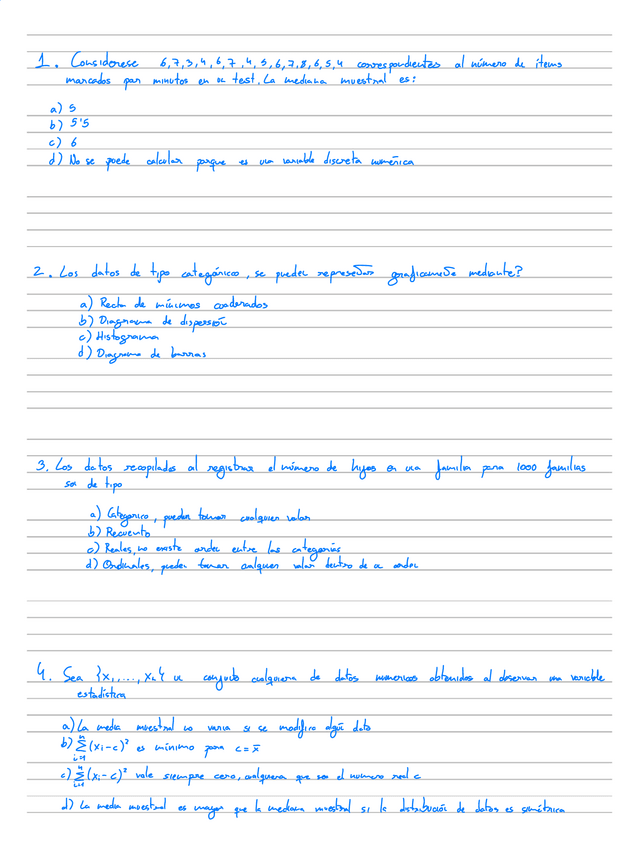 1. Considerese 6,7,3,4,6,7,4,5,6,7,8,6,5,4 correspondientes al número de items
marcados por minutos en un test. La mediana muestral es:
a) 5
b) 5'5
c) 6
d) No se puede calcular porque es una variable discreta numérica
2. Los datos de tipo categórico, se pueden representar graficamente mediante?
a) Recta de mínimos cuadrados
b) Diagrama de dispersión
c) Histograma
d) Diagrama de barras
3. Los datos recopilados al registrar el número de hijos en una familia para 1000 familias
son de tipo
a) Categorico, pueden tomar cualquier valor
b) Recuento
c) Reales, no existe orden entre las categorías
d) Ordinales, pueden tomar cualquier valor dentro de un orden
4. Sea {x₁,...,xₙ} un conjunto cualquiera de datos numericos obtenidos al observar una variable
estadística
a) La media muestral no varia si se modifica algún dato
b) Σⁿᵢ₌₁(xᵢ-c)² es mínimo para c=x̄
c) Σⁿᵢ₌₁(xᵢ-c)² vale siempre cero, cualquiera que sea el numero real c
d) La media muestral es mayor que la mediana muestral si la distribución de datos es simétrica